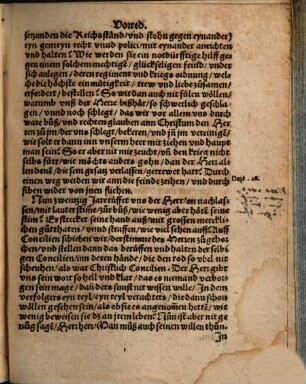 Vorred.
sezunden die Reichsständ/ vnd stohn gegen eynander)
eyn gemeyn recht vnnd polici/ mit eynander anrichten
vnd halten? Wie werden sie ein notdürfftige hilff gege-
gen einem solchen mächtige/ glückseligen feind/ vnder
sich anlegen/ deren regiment vnd kriegs ordnung/ wel-
che die höchste einmütigkeit/ trew vnd liebe zusamen/
erfordert/ bestellen? So wir dann auch nit sälen wöllen/
warumb vnß der Herre bißhär/ so schwerlich geschla-
gen/ vnnd noch schlegt/ das wir vor allem vns durch
ware büß/ vnd rechten glauben ann Christum den Her-
ren zů jm/ der vns schlegt/ bekeren/ vnd zů jm vereinigē/
wie solt er dann mit vnsern heer mit ziehen vnd haupt
man sein? So er aber nit mit zeucht/ vnß den krieg nicht
selbs fürt/ wie möchts anders gohn/ dan der Herr allen
denē/ die sein gesatz verlassen/ getrewet hatt? Durch
einen weg werden wir ann die feinde zeihen/ vnd durch
siben wider von jnen fliehen.
Deut. 28.
Nun zwentzig Jar rüfft vns der Herr/ on nachlas-
sen/ mit lauter stimē/ zůr büß/ wie wenig aber hört seine
stim? Er strecket seine hand auß/ mit grossen mercklis-
chen gůtthaten/ vnnd straffen/ wie viel sehen auff? Auff
Concilien schieben wirs/ der
vnd stellen dann das berüffen vnd halten der selbi-
gen Concilien/ inn deren hände/ die den tod so vbel nit
scheuhen/ als war Christlich Concilien. Der Herr gibt
vns sein wort so hell vnd klar/ das es niemand verbor-
gen sein mage/ dan der sunst nit wissen wille/ In dem
verfolgers eyn teyl/ eyn teyl verachters/ die dann schon
wöllen gesehen sein/ als ob sie es angenomen hetten/ wie
wenig beweisen sie dz an jrem leben? Nun ist aber nit ge-
nůg sagē/ Herr herr/ Man můß auch seinen willen thůn.
Jn